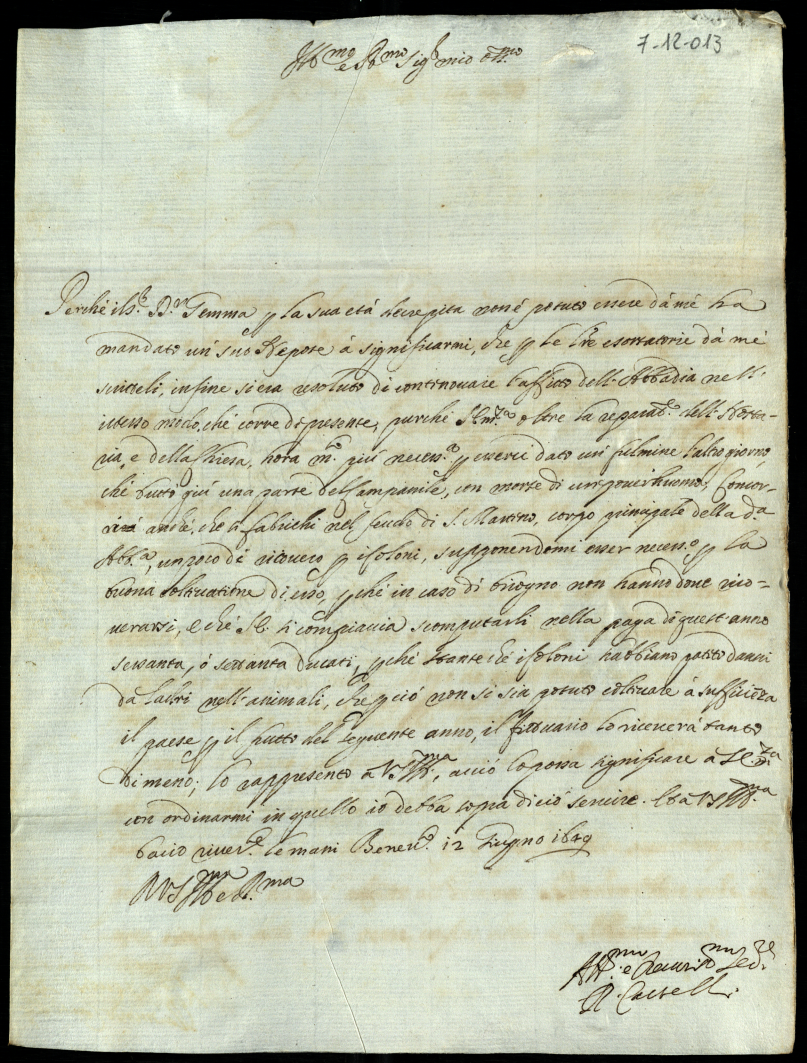 7-12-013
Ill.mo e R.mo Sig.r mio oss.mo
Perché il S.r D.r Gemma p la sua età decrepita non è potuto essere da mé ha
mandato un suo Nepote à significarmi, che p le lre esortatorie da mé
scritteli, infine si era resoluto di continovare l'affitto dell'Abbadia nell'
istesso modo, che corre di presente, purché oltre la reparat.e dell'Hosta-
ria, e della Chiesa, hora m.o più necess.o p esserci dato un fulmine l'altro giorno,
che buttò giù una parte del Campanile, con morte di un pover huomo,
anche, che si fabrichi nel feudo di S. Martino, corpo principale della d.a
Abb.a, un poco di ricovero p i coloni, supponendomi esser necess.o p la
buona coltivatione di esso, p che in caso di bisogno non hanno dove rico-
verarsi, e che si compiaccia scomputarli nella paga di quest'anno
sessanta, ò settanta ducati, p che stante che i coloni habbiano patito danni
da ladri nell'animali, che p ciò non si sia potuto coltivare à sufficienza
il paese p il frutto del seguente anno, il fittuario lo riceverà tanto
di meno; lo rappresento a V.S. Ill.ma, acciò lo possa significare a S. Em.za
con ordinarmi in quello io debba sopra di ciò servire. Et a V.S. Ill.ma
bacio river.e le mani Benev.o 12 Giugno 1649
D V S Ill.ma e R.ma
e Ser.re
Castelli